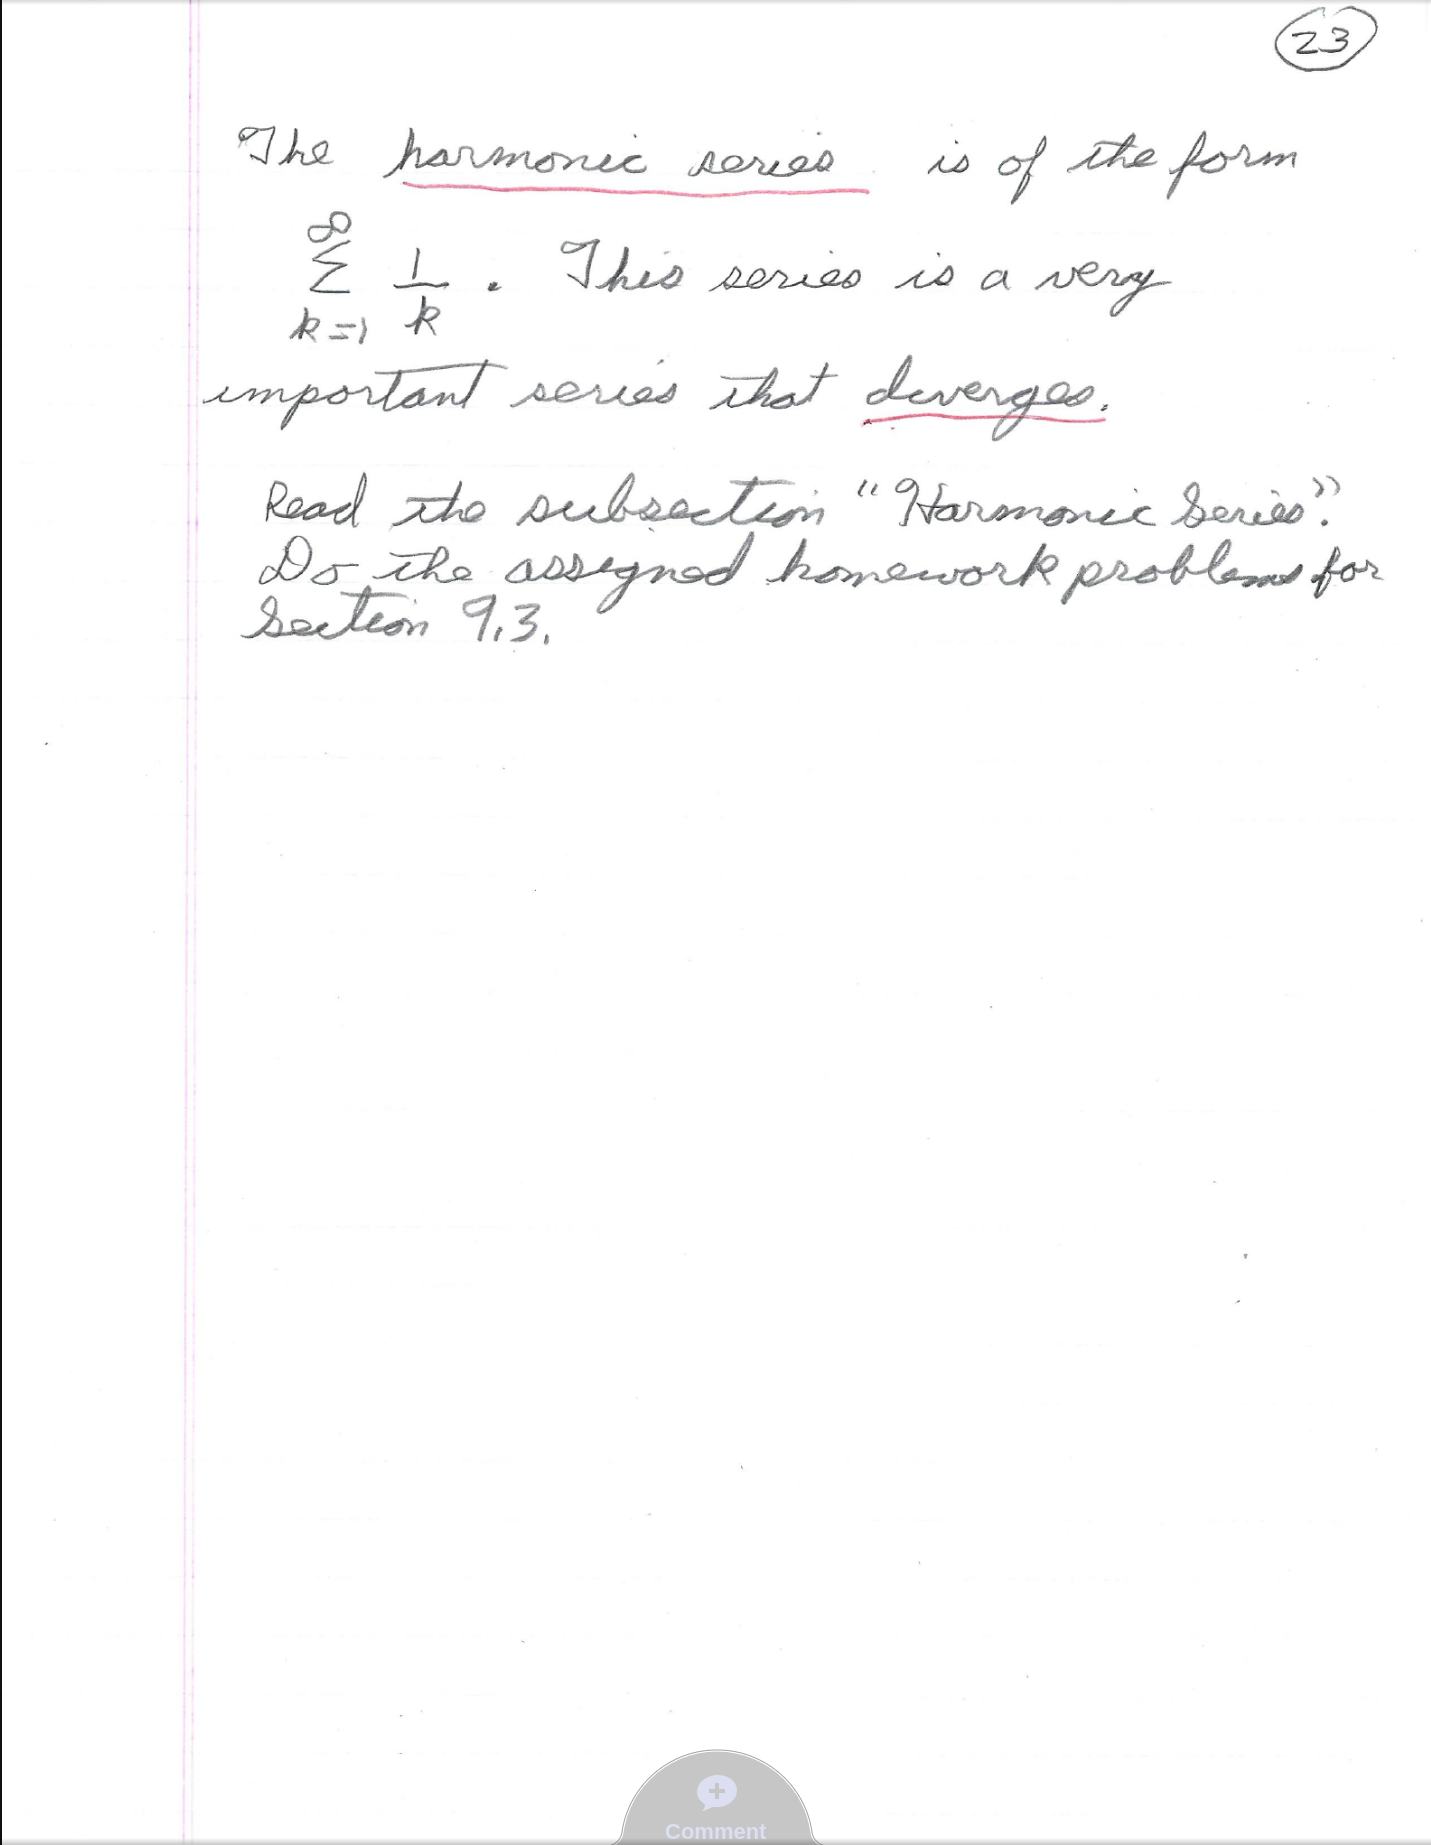 23
The harmonic series is of the form
∞
Σ 1/k . This series is a very
k=1
important series that diverges.
Read the subsection "Harmonic Series".
Do the assigned homework problems for
Section 9.3.
Comment